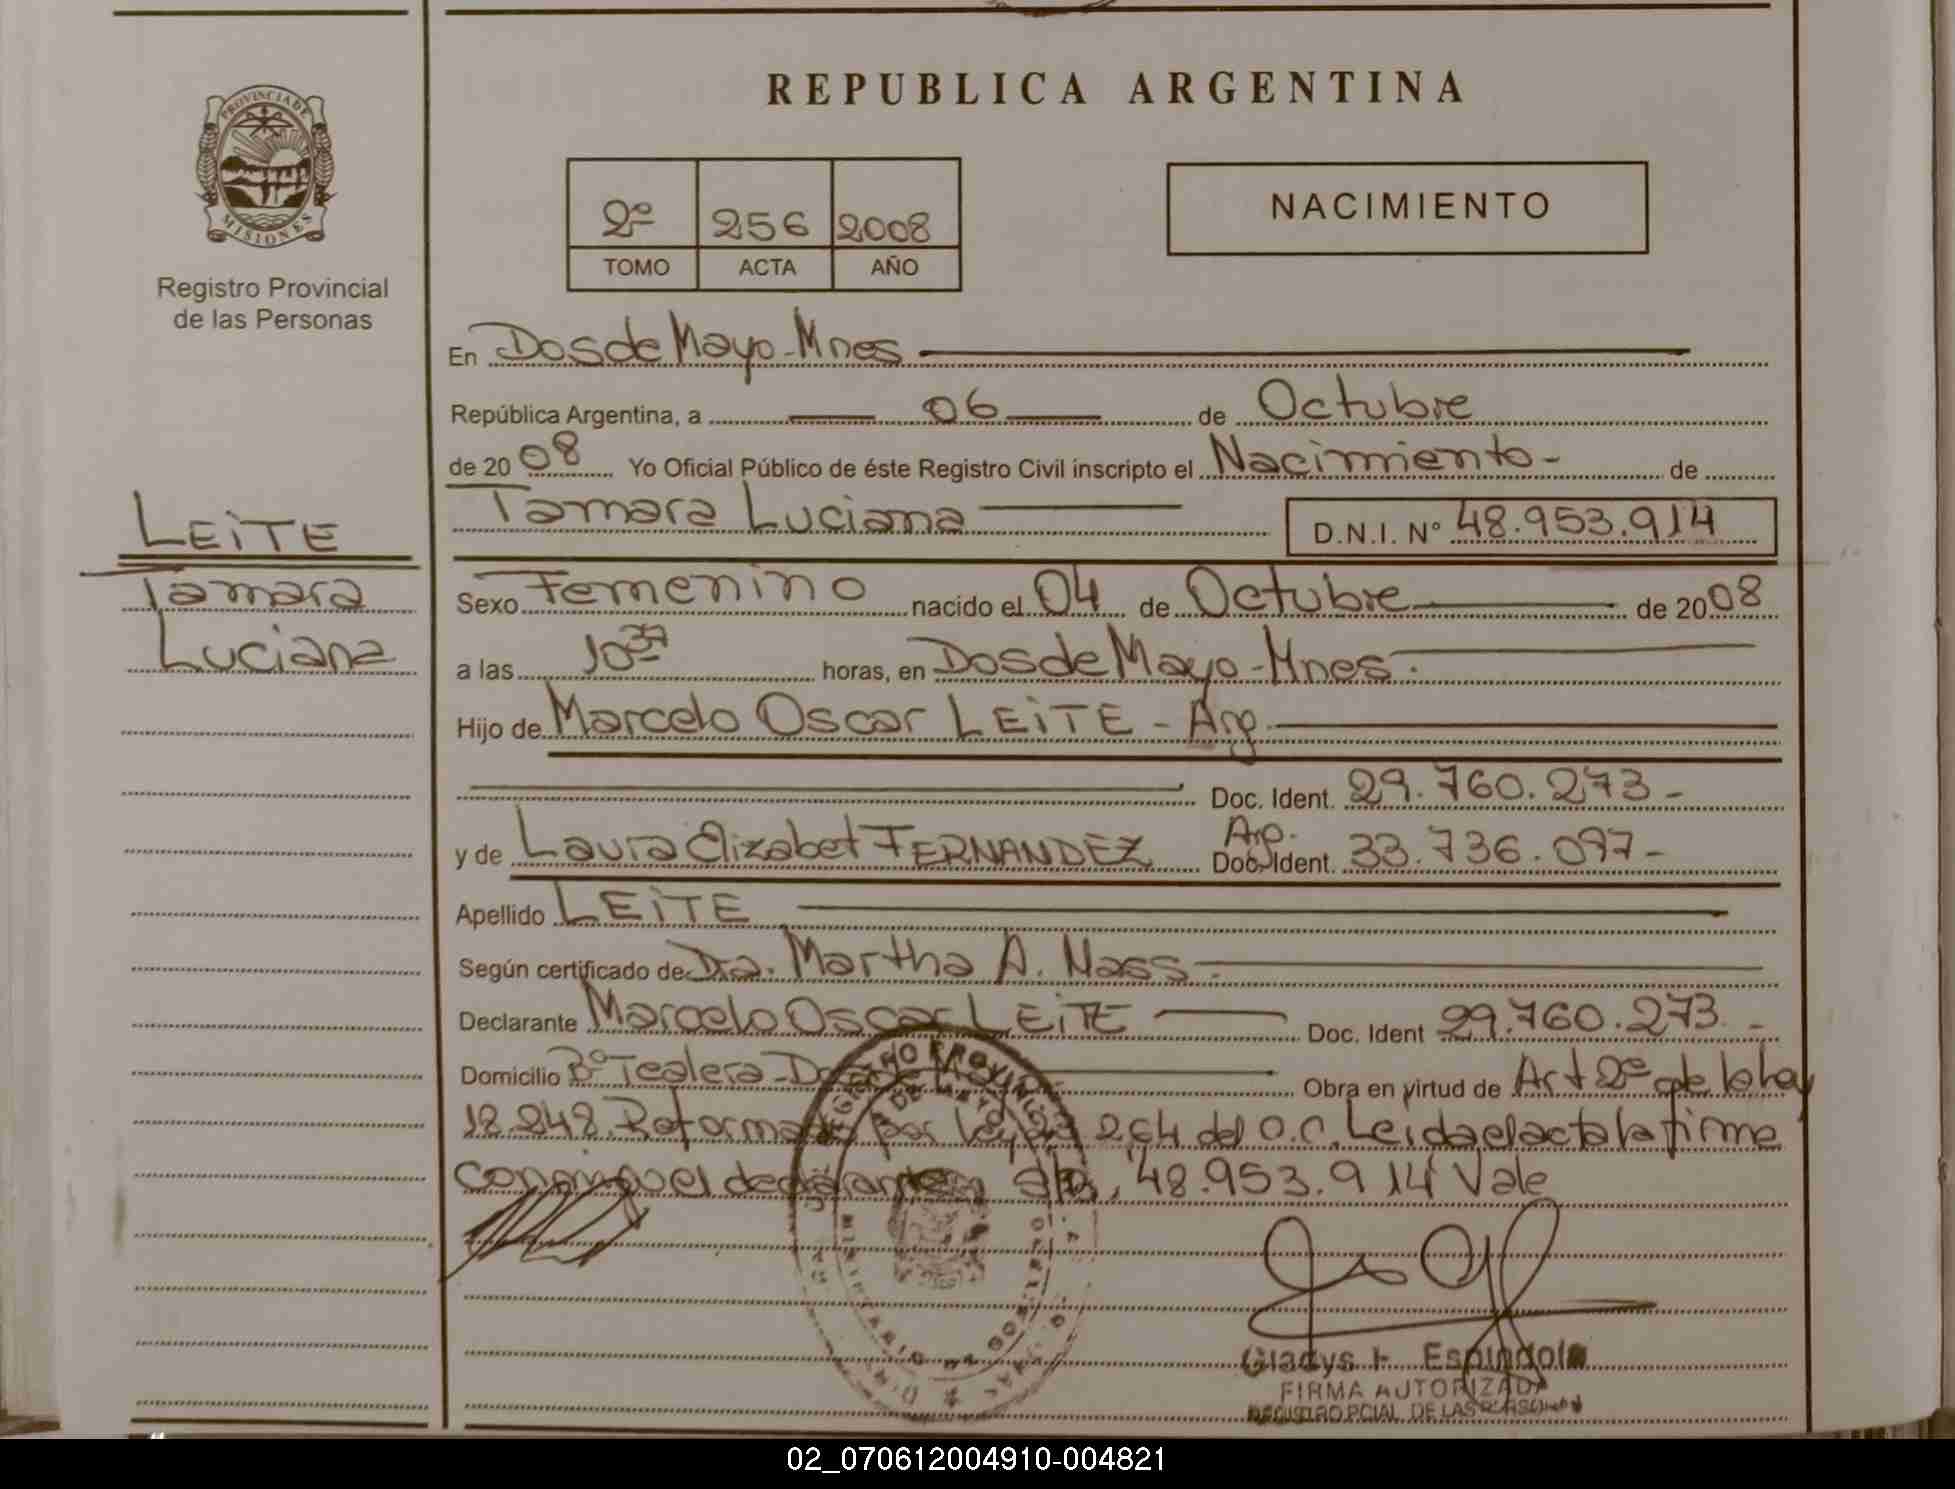 REPUBLICA ARGENTINA
PROVINCIA DE
MISIONES
Registro Provincial
de las Personas
2º 256 2008
TOMO ACTA AÑO
NACIMIENTO
En Dos de Mayo - Mnes
República Argentina, a 06 de Octubre
de 20 08 Yo Oficial Público de éste Registro Civil inscripto el Nacimiento - de
Tamara Luciana D.N.I. Nº 48.953.914
LEiTE
Tamara
Luciana
Sexo Femenino nacido el 04 de Octubre de 20 08
a las 10 37 horas, en Dos de Mayo - Mnes.
Hijo de Marcelo Oscar LEiTE - Arg.
Doc. Ident. 29.760.273 -
y de Laura Elizabet FERNANDEZ Arg. Doc. Ident. 33.736.097 -
Apellido LEiTE
Según certificado de Dra. Martha A. Nass -
Declarante Marcelo Oscar LEiTE Doc. Ident 29.760.273. -
Domicilio Bº Tealera - Obra en virtud de Art 2º de la ley
18.248. Reformada por ley 23.264 del C.C. Leida el acta la firma
conmigo el declarante 48.953.914 Vale
Gladys H. Espindola
FIRMA AUTORIZADA
REGISTRO PCIAL. DE LAS PERSONAS
02_070612004910-004821